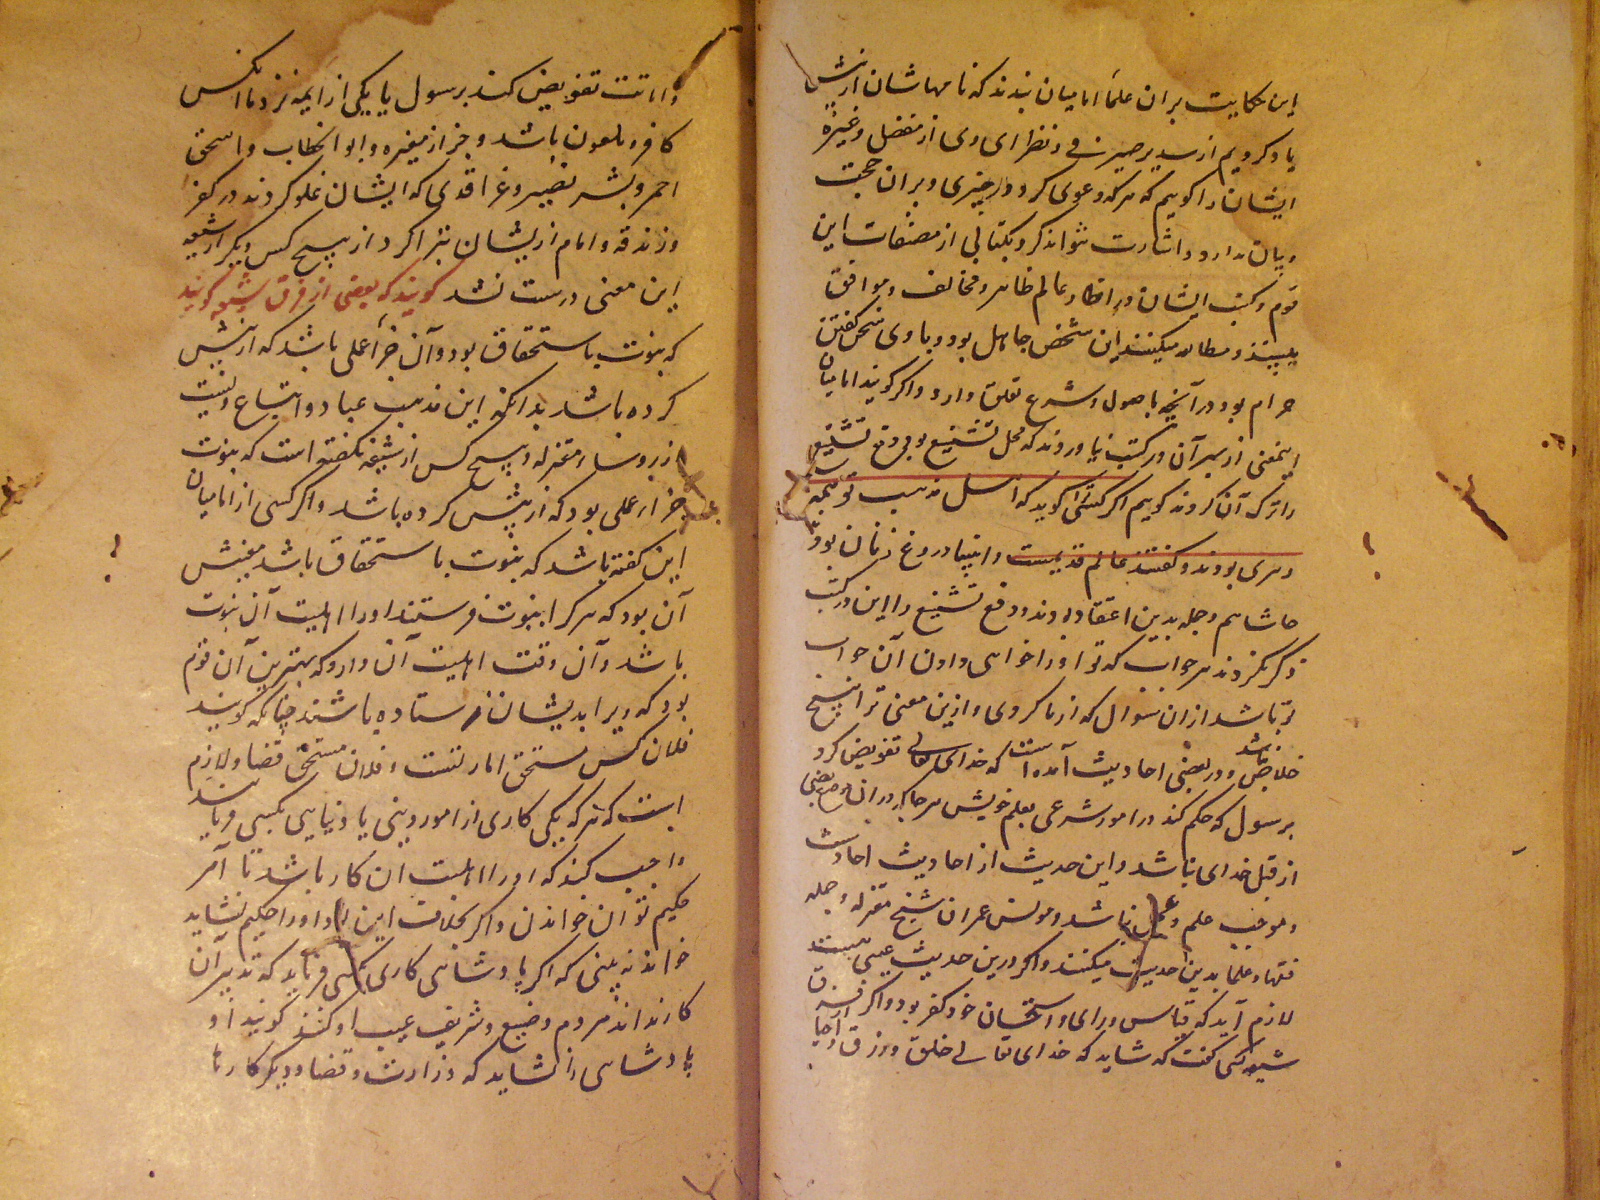 این حکایت بران علما امامیان بندند که نامهاشان ازپیش
یاد کردیم از سدیر صیرفی و نظرای وی از مفضل و غیره
ایشان را گوییم که هر که دعوی کرد در چیزی و بران حجت
و بیان ندارد و اشارت نتواند کرد بکتابی از مصنفات این
قوم و کتب ایشان در اقطار عالم ظاهر و مخالف و موافق
می‌بینند و مطالعه میکنند این شخص جاهل بود و با وی سخن گفتن
حرام بود در آنچه باصول و شرع تعلق دارد و اگر گویند امامیان
اینمعنی از بهر آن در کتب نیاوردند که محل تشنیع بود دفع تشنیع
را ترک آن کردند گوییم اگر کسی گوید که اسل مذهب تو همه
دهری بودند و گفتند عالم قدیمست و انبیا دروغ زنان بودند
حاشاهم و جمله بدین اعتقاد بودند و دفع تشنیع را این در کتب
ذکر نکردند هر جواب که تو او را خواهی دادن آن جواب
تو باشد ازان سوال که از ما کردی و ازین معنی ترا هیچ
خلاص نباشد و در بعضی احادیث آمده است که خدای تعالی تفویض کرد
برسول که حکم کند در امور شرعی بعلم خویش هرجا که دران موضع نصی
از قبل خدای نباشد و این حدیث از احادیث احادست
و موجب علم و عمل نباشد و مونس عمران شیخ معتزله و جمله
فقها و علما بدین حدیث میکنند و اگر درین حدیث عیبی هست
لازم آید که قیاس و رای و استحسان خود کفر بود و اگر از فرق
شیعه کسی گفت که شاید که خدای تعالی خلق و رزق و احیا
و اماتت تفویض کند برسول یا یکی از ایمه نزد ما انکس
کافر و ملعون باشد و جز از مغیره و ابو الخطاب و اسحق
احمر و بشر نصیر و غراقدی که ایشان غلو کردند در کفر
و زندقه و امام ازیشان تبرا کرد از هیچ کس دیگر از شیعه
این معنی درست نشد گویند که بعضی از فرق شیعه گویند
که نبوت باستحقاق بود و آن جزأ عملی باشد که ازپیش
کرده باشد بدانکه این مذهب عباد و اتباع ویست
از رؤسا معتزله و هیچ کس از شیعه نگفته است که نبوت
جزاء عملی بود که ازپیش کرده باشد و اگر کسی از امامیان
این گفته باشد که نبوت باستحقاق باشد معنیش
آن بود که هر کرا بنبوت فرستند او را اهلیت آن نبوت
باشد و آن وقت اهلیت آن دارد که بهترین آن قوم
بود که ویرا بدیشان فرستاده باشند چنانکه گویند
فلان کس مستحق امارتست و فلان مستحق قضا و لازم
است که هر که یکی کاری از امور دینی یا دنیایی بکسی فرماید
واجب کند که او را اهلیت ان کار باشد تا آمر
حکیم توان خواندن و اگر بخلاف این بود او را حکیم نشاید
خواند نه بینی که اگر پادشاهی کاری بکسی فرماید که تدبیر آن
کار نداند مردم وضیع و شریف عیب او کنند گویند او
پادشاهی را نشاید که وزارت و قضا و دیگر کارها